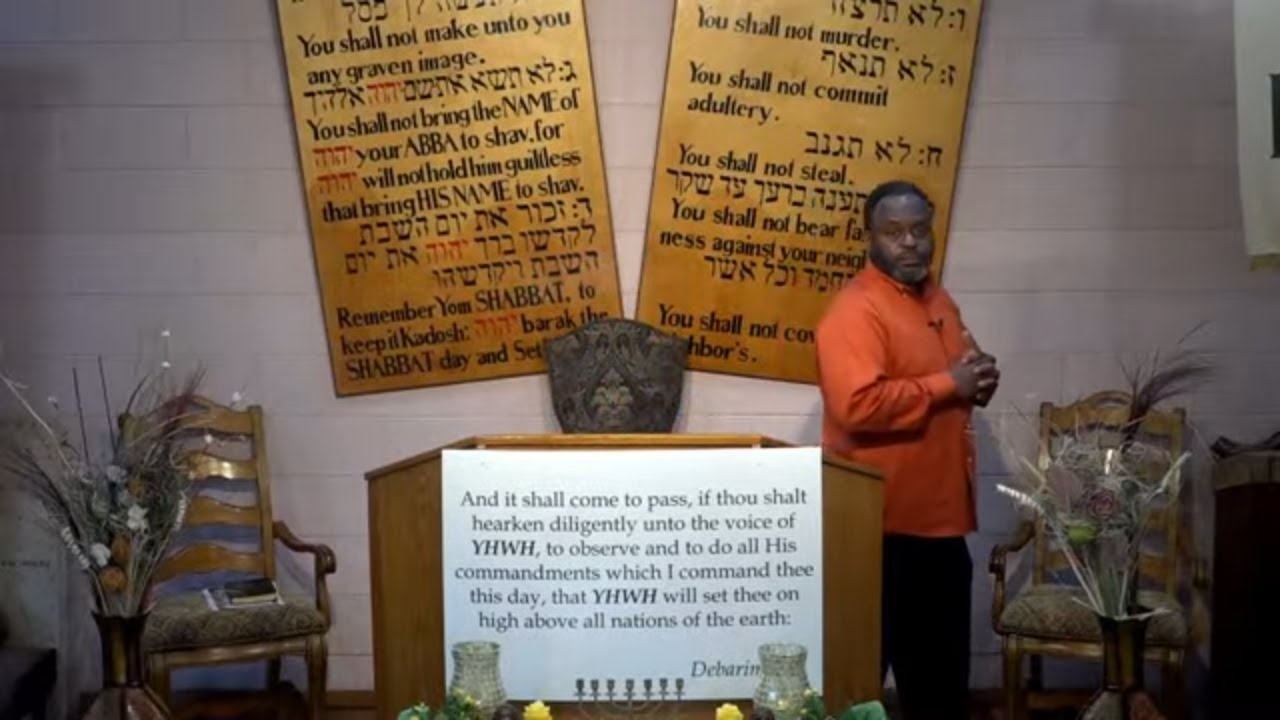 You shall not make unto you
any graven image.
ג: לא תשא את שם יהוה אלהיך
You shall not bring the NAME of
יהוה your ABBA to shav, for
יהוה will not hold him guiltless
that bring HIS NAME to shav.
ד: זכור את יום השבת
לקדשו ברך יהוה את יום
השבת ויקדשהו
Remember Yom SHABBAT, to
keep it Kadosh: יהוה barak the
SHABBAT day and Set
ו: לא תרצח
You shall not murder.
ז: לא תנאף
You shall not commit
adultery.
ח: לא תגנב
You shall not steal.
תענה ברעך עד שקר
You shall not bear fa
ness against your neigh
תחמד וכל אשר
You shall not cov
hbor's.
And it shall come to pass, if thou shalt
hearken diligently unto the voice of
YHWH, to observe and to do all His
commandments which I command thee
this day, that YHWH will set thee on
high above all nations of the earth:
Debarim